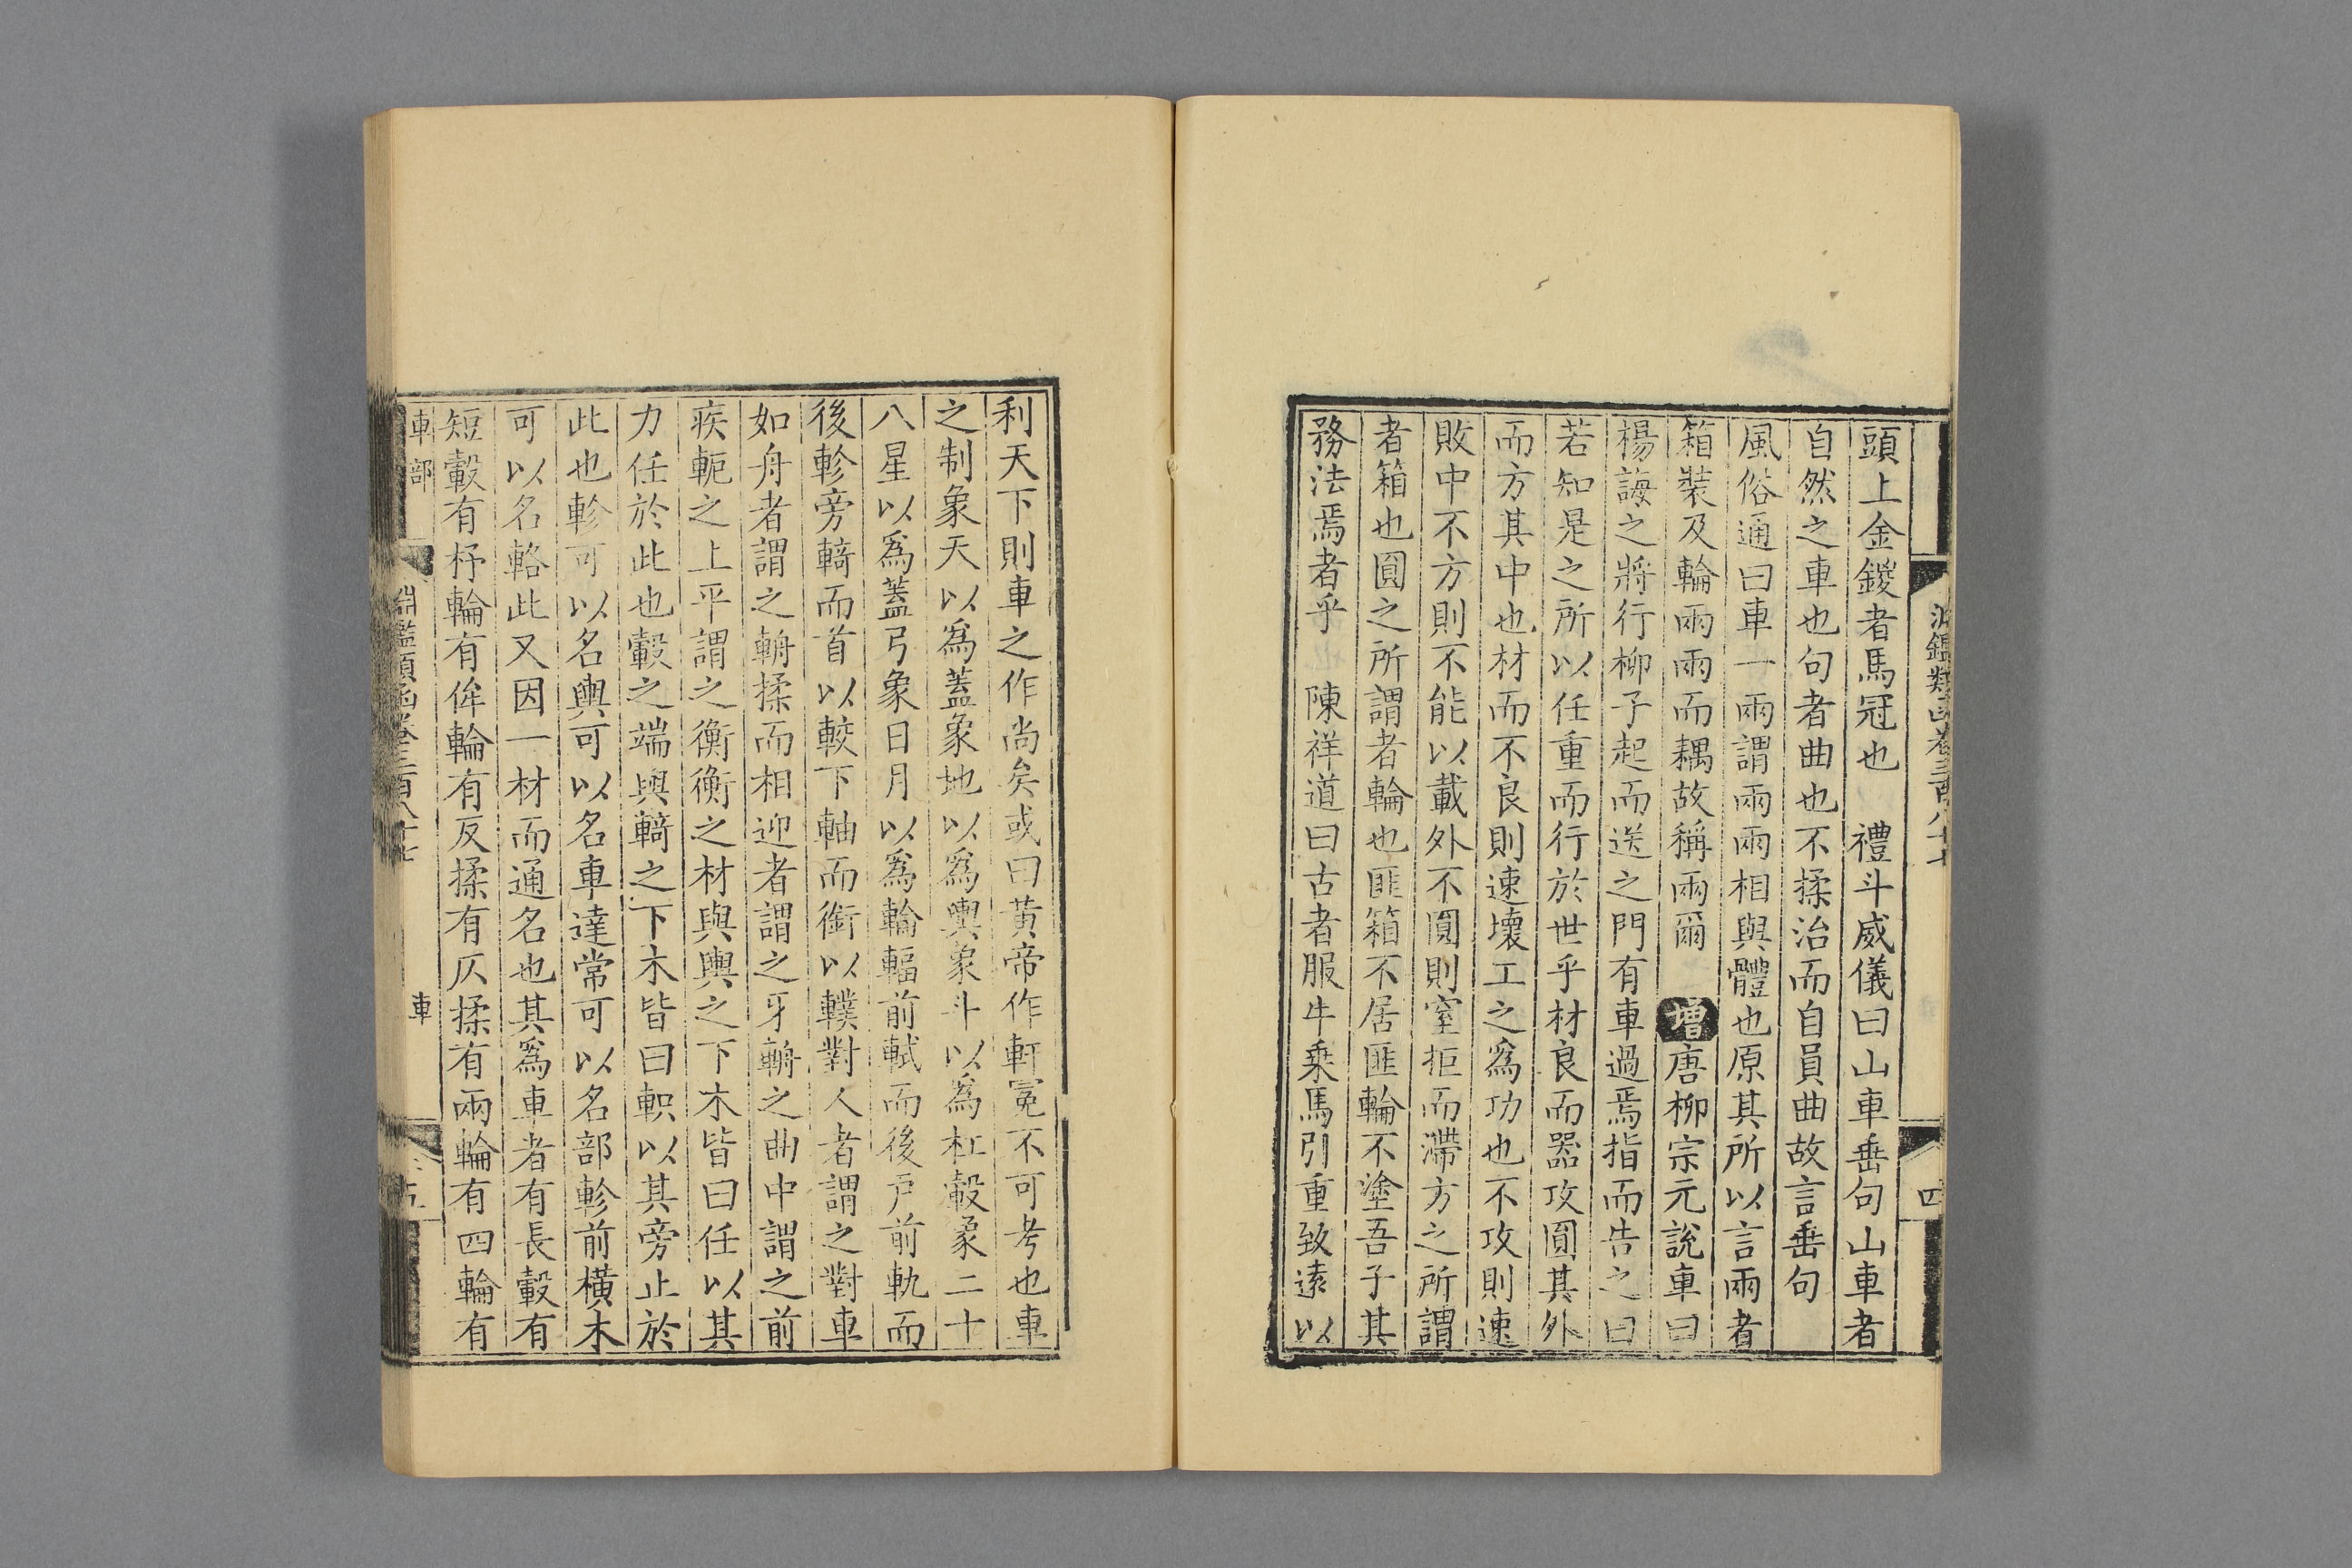 淵鑑類函卷三百八十七
四
頭上金鍐者馬冠也　禮斗威儀曰山車垂句山車者
自然之車也句者曲也不揉治而自員曲故言垂句
風俗通曰車一兩謂兩兩相與體也原其所以言兩者
箱裝及輪兩兩而耦故稱兩爾　增唐柳宗元說車曰
楊誨之將行柳子起而送之門有車過焉指而告之曰
若知是之所以任重而行於世乎材良而器攻圓其外
而方其中也材而不良則速壞工之爲功也不攻則速
敗中不方則不能以載外不圓則窒拒而滯方之所謂
者箱也圓之所謂者輪也匪箱不居匪輪不塗吾子其
務法焉者乎　陳祥道曰古者服牛乗馬引重致遠以
利天下則車之作尚矣或曰黃帝作軒冕不可考也車
之制象天以爲蓋象地以爲輿象斗以爲杠轂象二十
八星以爲蓋弓象日月以爲輪輻前軾而後戶前軌而
後軫旁輢而首以較下軸而銜以轐對人者謂之對車
如舟者謂之輈揉而相迎者謂之牙輈之曲中謂之前
疾軛之上平謂之衡衡之材與輿之下木皆曰任以其
力任於此也轂之端與輢之下木皆曰軹以其旁止於
此也軫可以名輿可以名車達常可以名部軫前橫木
可以名輅此又因一材而通名也其爲車者有長轂有
短轂有杼輪有侔輪有反揉有仄揉有兩輪有四輪有
車部　淵鑑類函卷三百八十七　車　五